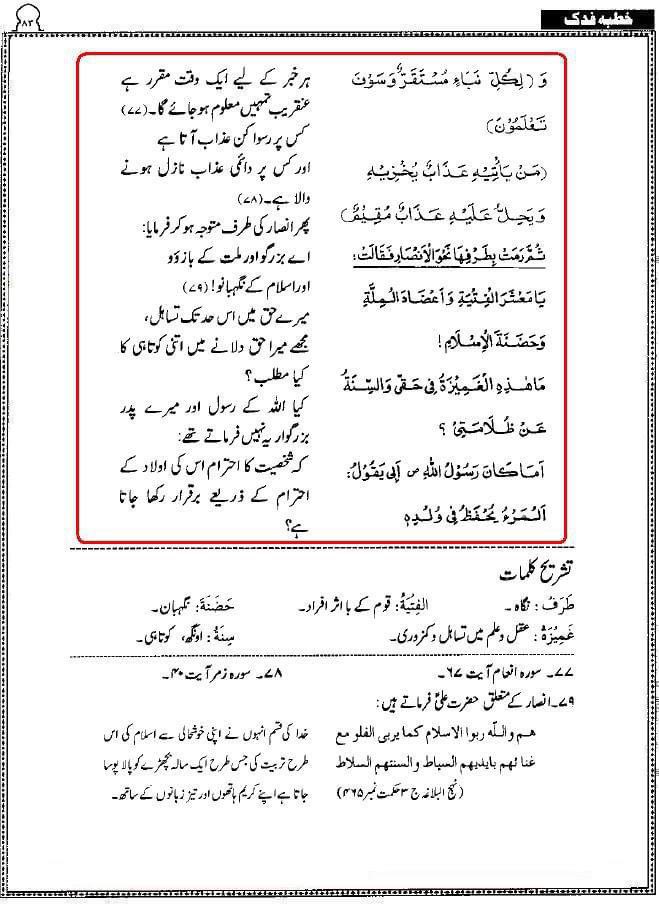 خطبہ فدک
۸۳
وَ (لِكُلِّ نَبَاءٍ مُسْتَقَرٌّ وَسَوْفَ
تَعْلَمُونَ)
(مَنْ يَأْتِيهِ عَذَابٌ يُخْزِيهِ
وَيَحِلُّ عَلَيْهِ عَذَابٌ مُقِيمٌ)
ثُمَّ رَمَتْ بِطَرْفِهَا نَحْوَ الْأَنْصَارِ فَقَالَتْ:
يَا مَعْشَرَ الْفِتْيَةِ وَأَعْضَادَ الْمِلَّةِ
وَحَضَنَةَ الْإِسْلَامِ!
مَا هٰذِهِ الْغَمِيزَةُ فِي حَقِّي وَالسِّنَةُ
عَنْ ظُلَامَتِي ؟
اَمَا كَانَ رَسُولُ اللهِ ص أَبِي يَقُولُ:
اَلْمَرْءُ يُحْفَظُ فِي وُلْدِهِ
ہر خبر کے لیے ایک وقت مقرر ہے
عنقریب تمہیں معلوم ہو جائے گا۔ (۷۷)
کس پر رسوا کن عذاب آتا ہے
اور کس پر دائمی عذاب نازل ہونے
والا ہے۔ (۷۸)
پھر انصار کی طرف متوجہ ہو کر فرمایا:
اے بزرگو اور ملت کے بازوؤ
اور اسلام کے نگہبانو! (۷۹)
میرے حق میں اس حد تک تساہل،
مجھے میرا حق دلانے میں اتنی کوتاہی کا
کیا مطلب؟
کیا اللہ کے رسول اور میرے پدر
بزرگوار یہ نہیں فرماتے تھے:
کہ شخصیت کا احترام اس کی اولاد کے
احترام کے ذریعے برقرار رکھا جاتا
ہے؟
تشریح کلمات
طَرَف: نگاہ۔ الفِتْيَةُ: قوم کے با اثر افراد۔ حَضَنَة: نگہبان۔
غَمِيْزَة: عقل و علم میں تساہل و کمزوری۔ سِنَة: اونگھ، کوتاہی۔
۷۷۔ سورہ انعام آیت ۶۷۔ ۷۸۔ سورہ زمر آیت ۴۰۔
۷۹۔ انصار کے متعلق حضرت علیؑ فرماتے ہیں:
هم والله ربوا الاسلام كما يربى الفلو مع
غنائهم بايديهم السباط والسنتهم السلاط
(نہج البلاغہ ج ۳ حکمت نمبر ۴۶۵)
خدا کی قسم انہوں نے اپنی خوشحالی سے اسلام کی اس
طرح تربیت کی جس طرح ایک سالہ بچھڑے کو پالا پوسا
جاتا ہے اپنے کریم ہاتھوں اور تیز زبانوں کے ساتھ۔